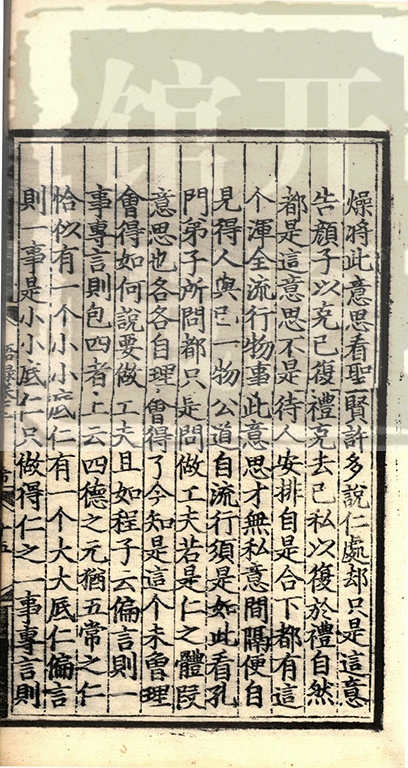 燥將此意思看聖賢許多說仁處却只是這意
告顏子以克已復禮克去已私以復於禮自然
都是這意思不是待人安排自是合下都有這
个渾全流行物事此意思才無私意間隔便自
見得人與已一物公道自流行須是如此看孔
門弟子所問都只是問做工夫若是仁之體段
意思也各各自理會得了今知是這个未曾理
會得如何說要做工夫且如程子云偏言則一
事專言則包四者上云四德之元猶五常之仁
恰似有一个小小底仁有一个大大底仁偏言
則一事是小小底仁只做得仁之一事專言則